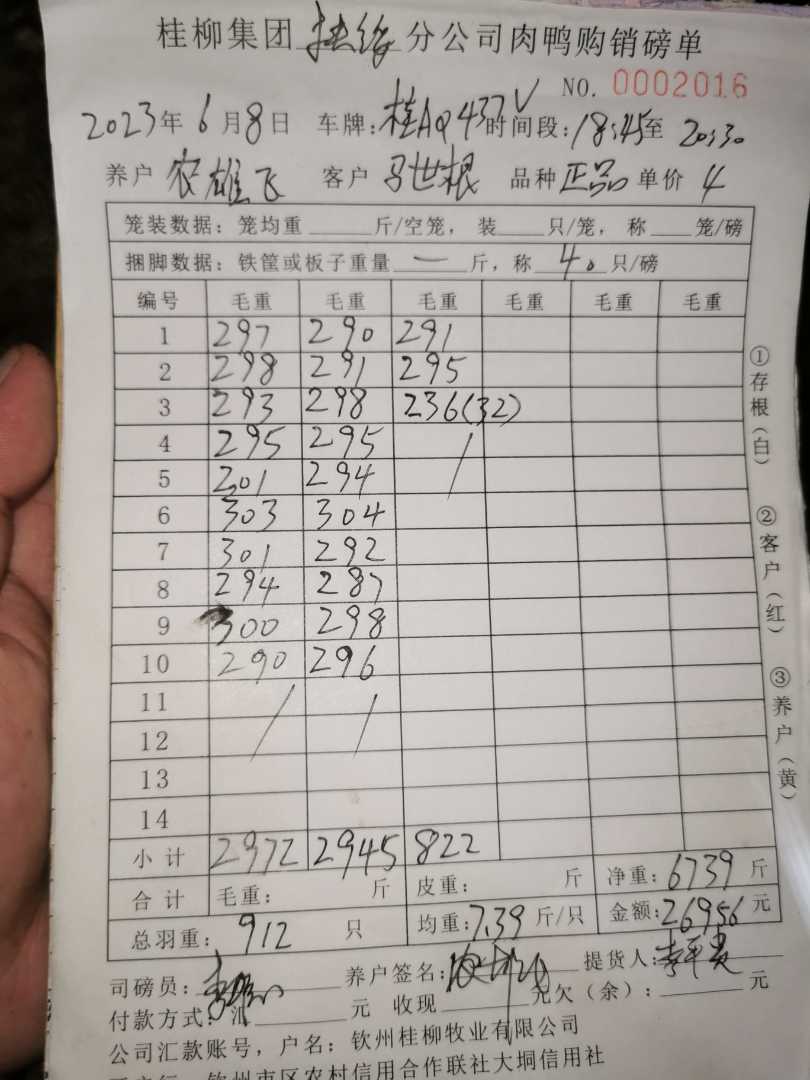 桂柳集团 扶绥 分公司肉鸭购销磅单
NO. 0002016
2023年6月8日 车牌:桂AQ437V 时间段:18:45至20:30
养户 农雄飞 客户 马世根 品种 正品 单价 4
笼装数据: 笼均重____斤/空笼, 装____只/笼, 称____笼/磅
捆脚数据: 铁筐或板子重量 — 斤, 称 40 只/磅
编号 毛重 毛重 毛重 毛重 毛重 毛重
1 297 290 291
2 298 291 295
3 293 298 236(32)
4 295 295 /
5 301 294
6 303 304
7 301 292
8 294 287
9 300 298
10 290 296
11 / /
12
13
14
小计 2972 2945 822
合计 毛重: 斤 皮重: 斤 净重:6739 斤
总羽重: 912 只 均重:7.39 斤/只 金额:26956 元
司磅员: 养户签名: 提货人:李平贵
付款方式: 汇____元 收现____元欠(余):____元
公司汇款账号, 户名: 钦州桂柳牧业有限公司
钦州市区农村信用合作联社大垌信用社
①存根(白)
②客户(红)
③养户(黄)